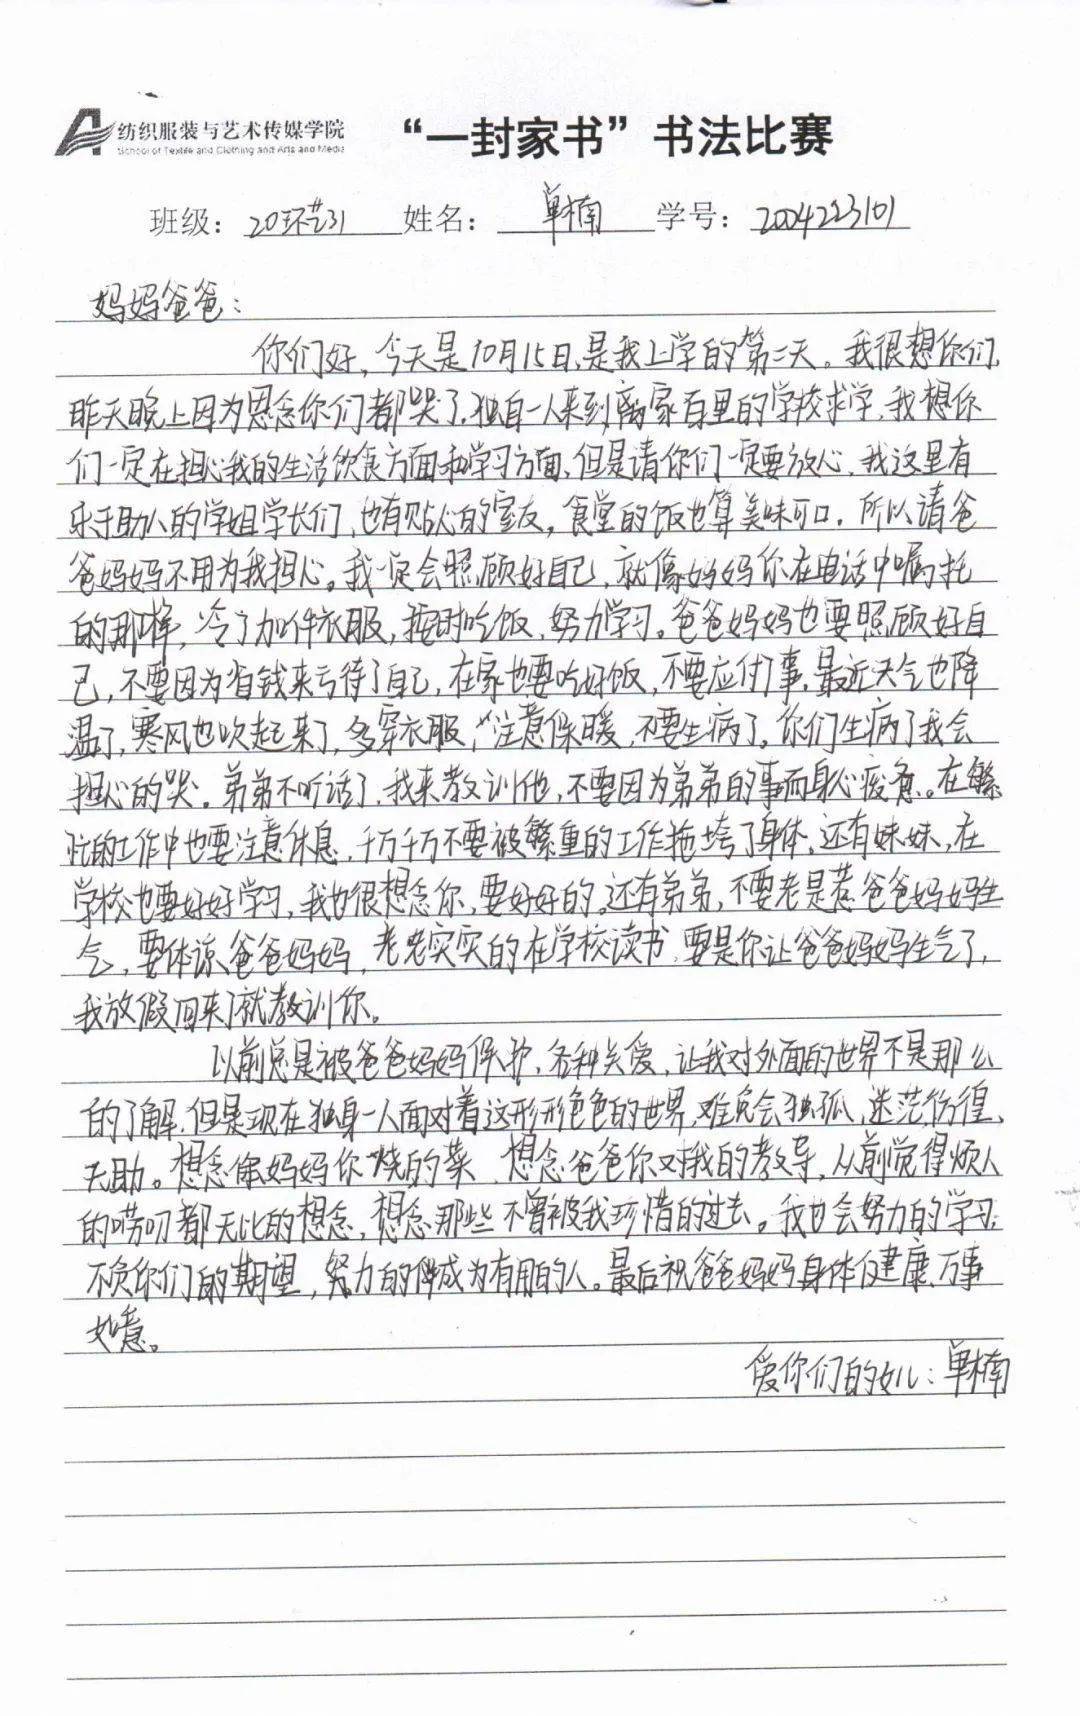 纺织服装与艺术传媒学院
School of Textile and Clothing and Arts and Media
“一封家书”书法比赛
班级：20环艺31 姓名：单楠 学号：2004223101
妈妈爸爸：
你们好，今天是10月15日，是我上学的第二天。我很想你们，
昨天晚上因为思念你们都哭了，独自一人来到离家百里的学校求学，我想你
们一定在担心我的生活饮食方面和学习方面，但是请你们一定要放心，我这里有
乐于助人的学姐学长们，也有贴心的室友，食堂的饭也算美味可口，所以请爸
爸妈妈不用为我担心。我一定会照顾好自己，就像妈妈你在电话中嘱托
的那样，冷了加件衣服，按时吃饭，努力学习。爸爸妈妈也要照顾好自
己，不要因为省钱来亏待了自己，在家也要吃好饭，不要应付了事，最近天气也降
温了，寒风也吹起来了，多穿衣服，注意保暖，不要生病了。你们生病了我会
担心的哭。弟弟不听话了，我来教训他，不要因为弟弟的事而身心疲惫。在繁
忙的工作中也要注意休息，千万千万不要被繁重的工作拖垮了身体，还有妹妹，在
学校也要好好学习，我也很想念你，要好好的。还有弟弟，不要老是惹爸爸妈妈生
气，要体谅爸爸妈妈，老老实实的在学校读书，要是你让爸爸妈妈生气了，
我放假回来了就教训你。
以前总是被爸爸妈妈保护，各种关爱，让我对外面的世界不是那么
的了解，但是现在独身一人面对着这形形色色的世界，难免会独孤，迷茫彷徨，
无助。想念妈妈你烧的菜，想念爸爸你对我的教导，从前觉得烦人
的唠叨都无比的想念，想念那些不曾被我珍惜的过去。我也会努力的学习，
不负你们的期望，努力的成为有用的人。最后祝爸爸妈妈身体健康，万事
如意。
爱你们的女儿：单楠